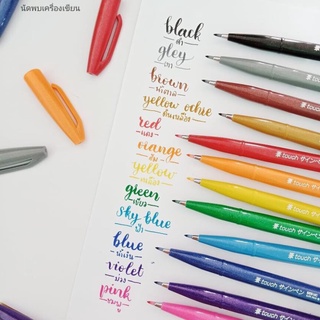 นัดพบเครื่องเขียน
black
ดำ
gley
เทา
brown
น้ำตาล
yellow ochie
ดินเหลือง
red
แดง
orange
ส้ม
yellow
เหลือง
green
เขียว
sky blue
ฟ้า
blue
น้ำเงิน
violet
ม่วง
pink
ชมพู
touch サインペン
touch サインペン
touch サインペン
touch サインペン
touch サインペン
touch サインペン